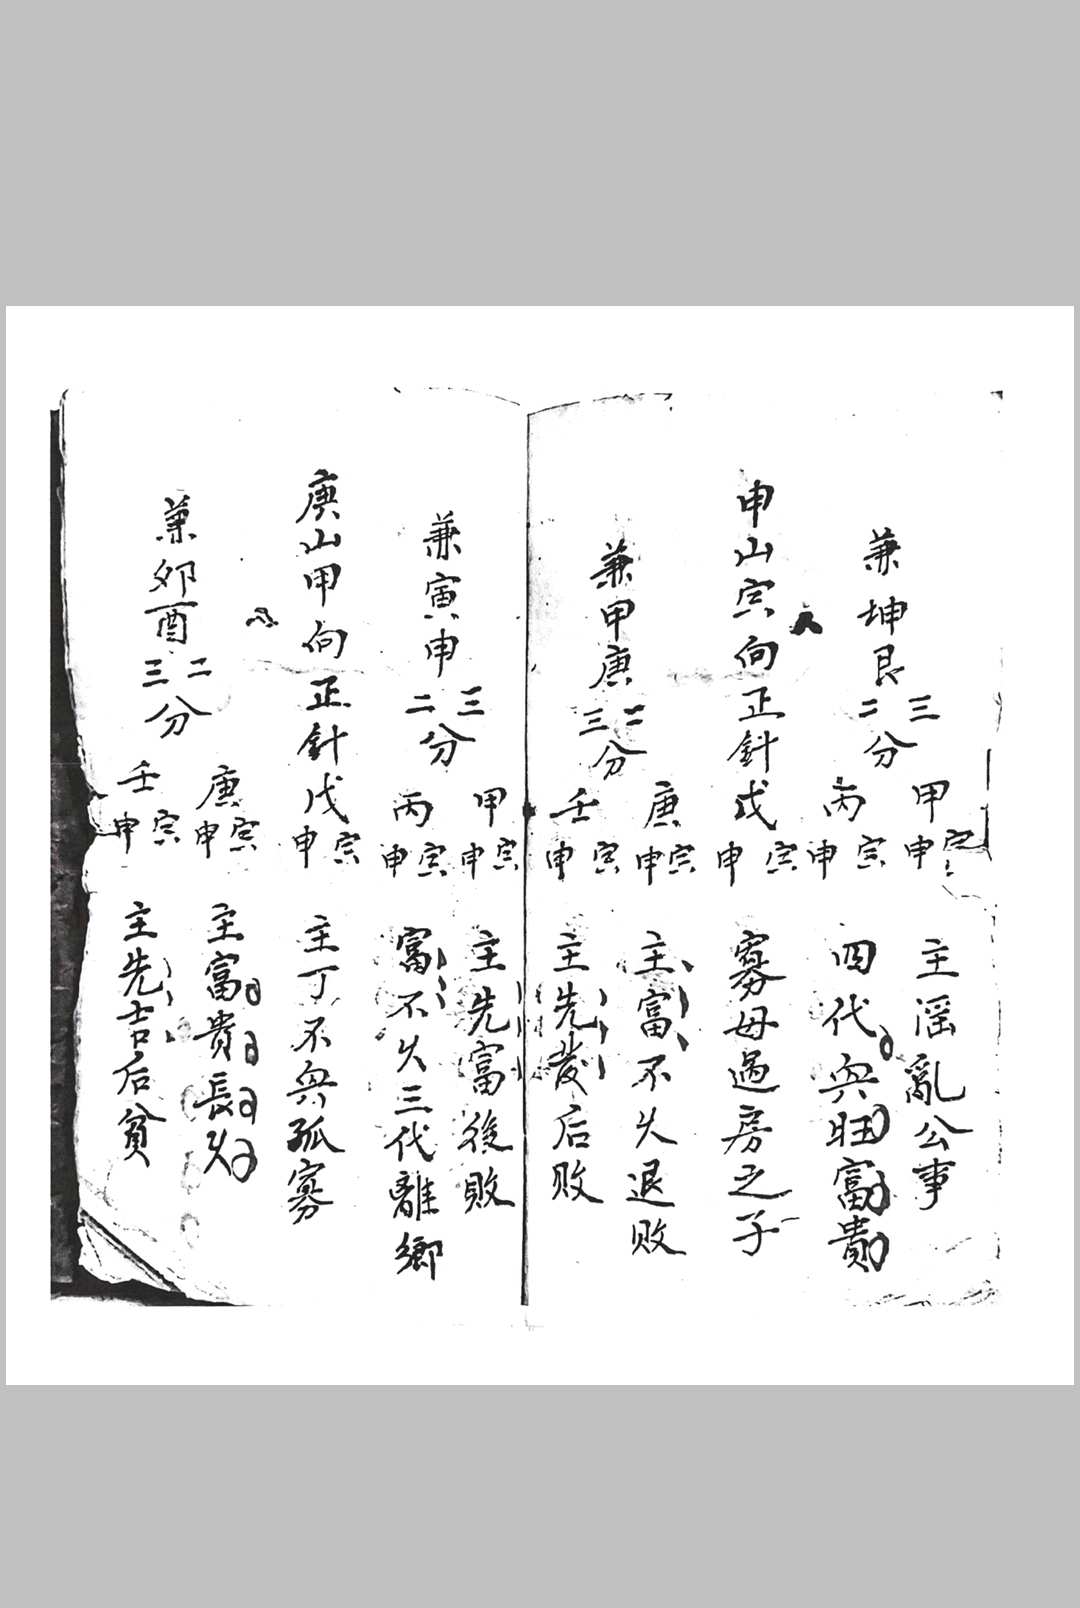 兼坤艮三二分
甲寅申 主滛亂公事
丙寅申 四代興旺富貴
申山寅向正針戊寅申 寡母過房之子
兼甲庚二三分
庚寅申 主富不久退败
壬寅申 主先發后败
兼寅申三二分
甲寅申 主先富後敗
丙寅申 富不久三代離鄉
庚山甲向正針戊寅申 主丁不興孤寡
兼卯酉二三分
庚寅申 主富貴長久
壬寅申 主先吉后貧